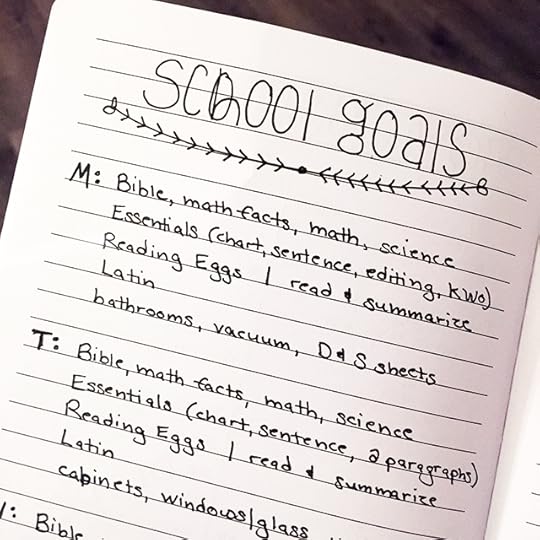 school goals
M: Bible, math facts, math, science
Essentials (chart, sentence, editing, KWO)
Reading Eggs | read & summarize
Latin
bathrooms, vacuum, D & S sheets
T: Bible, math facts, math, science
Essentials (chart, sentence, 2 paragraphs)
Reading Eggs | read & summarize
Latin
cabinets, windows/glass
Bible